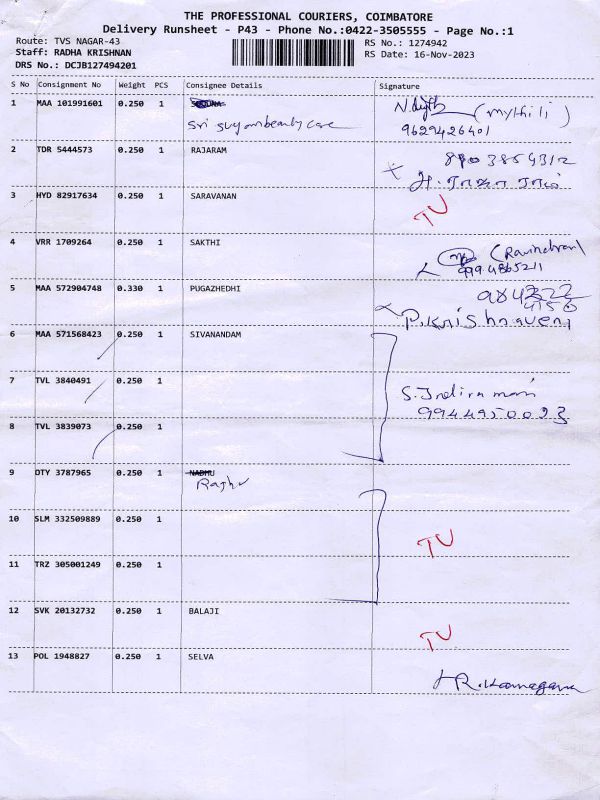 THE PROFESSIONAL COURIERS, COIMBATORE
Delivery Runsheet - P43 - Phone No.:0422-3505555 - Page No.:1
Route: TVS NAGAR-43 RS No.: 1274942
Staff: RADHA KRISHNAN RS Date: 16-Nov-2023
DRS No.: DCJB127494201
S No Consignment No Weight PCS Consignee Details Signature
1 MAA 101991601 0.250 1 (mythili)
9629426401
2 TDR 5444573 0.250 1 RAJARAM
3 HYD 82917634 0.250 1 SARAVANAN TV
4 VRR 1709264 0.250 1 SAKTHI
9994865211
5 MAA 572904748 0.330 1 PUGAZHEDHI
P.Krishnaveni
6 MAA 571568423 0.250 1 SIVANANDAM
7 TVL 3840491 0.250 1 S.Indira mani
9944950093
8 TVL 3839073 0.250 1
9 OTY 3787965 0.250 1 NADHU
Raghu
10 SLM 332509889 0.250 1 TV
11 TRZ 305001249 0.250 1
12 SVK 20132732 0.250 1 BALAJI TV
13 POL 1948827 0.250 1 SELVA